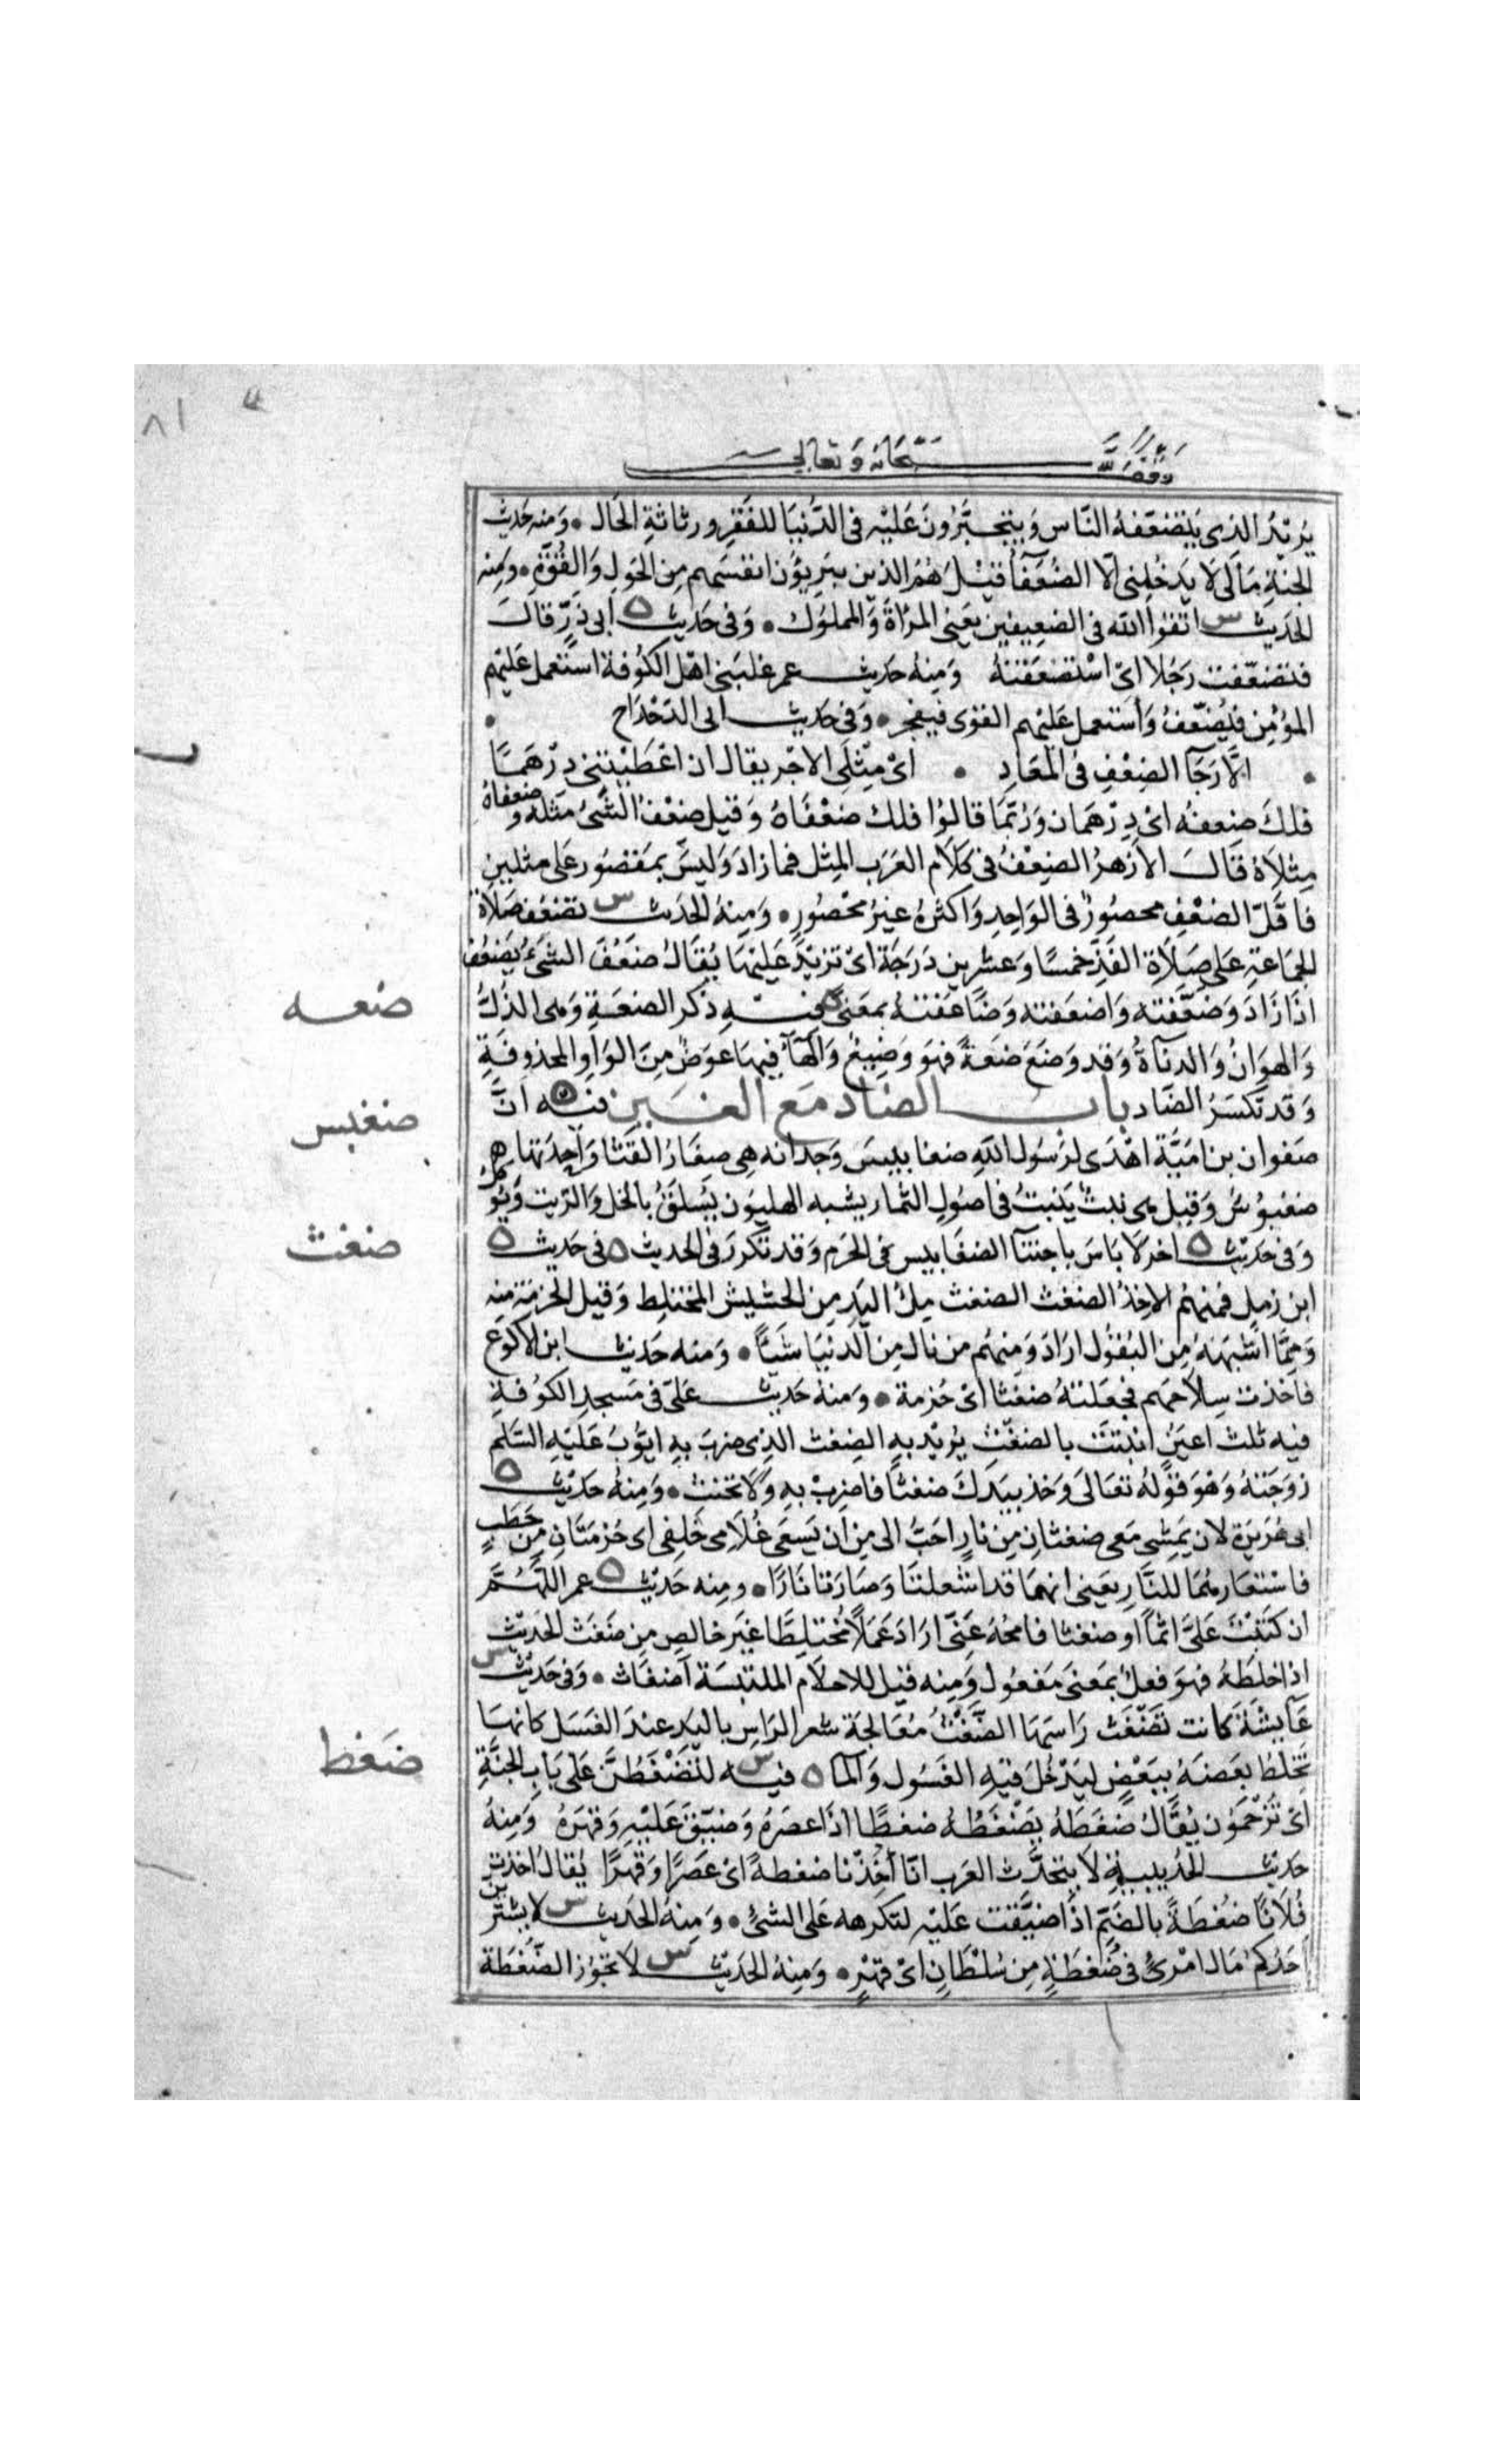 وقف لله سبحانه وتعالى
يُرِيْدُ الذى يَتضَعّفهُ النَّاس وَيتجبَّرُونَ عَليْه فى الدُّنيَا للفَقْرِ ورثاثةِ الحَال ۰ وَمنه حَديث
الجنةِ مَالى لا يَدخُلنِى الّا الضُعَفآءُ قيْلَ هُمُ الذين يبَرِّؤُن انفسَهم مِن الحَولِ وَالقُوَّةِ ۰ ومِنه
الحَديث س اتقوا الله فى الضَعِيفين يَعنِى المرْاةَ وَالمملوك ۰ وَفى حَديث ه ابى ذرٍّ قالَ
فتضعّفت رَجُلا اىْ اسْتضعَفتهُ وَمِنهُ حَديث عمر غلبَنى اهْل الكوُفة استعمل عَليْهم
المؤمِن فيُضَعّفُ وَاستعمل عَليْهم القوى فيفجر ۰ وَفى حَديث ابى الدّحْدَاح
۰ الَّا رَجَآ الضِعْفِ فى المعَادِ ۰ اىْ مِثْلَى الاجْر يقال ان اعْطَيْتنى دِرْهَمًا
فلكَ ضعفهُ اىْ دِرْهَمان وَرُبّمَا قالوُا فلك ضعْفَاهُ وَقيل ضعْفُ الشَّئُ مثله وضعفاهُ
مِثلاهُ قالَ الازهرُ الضِعْفُ فى كلَام العَرَب المِثل فما زادَ وَليسَ بمَقصُور على مثلين
فاقلّ الضعْفِ محصُورٌ فى الوَاحِدِ وَاكثرُهُ غيرُ محْصُورٍ ۰ وَمِنهُ الحَديث س تضعف صَلاة
الجمَاعةِ عَلى صَلاَة الفَذّ خمسًا وَعشرين دَرَجَة اىْ تزيْدُ عَليْهَا يُقالُ ضعَفَ الشىءُ يَضعُف
اذَا زَادَ وَضعّفته وَاضعَفته وَضاعَفتهُ بمعَنىً ه فيه ذكر الضعَةِ وَهى الذلُّ
وَالهوَانُ وَالدنآةُ وَقد وَضعَ ضعَةً فهوَ وَضيعٌ وَالهآءُ فيهَا عوَضٌ مِنَ الوَاوِ المحذوفَةِ
وَقد تكسَرُ الضّاد باب الضاد مَع الغين فيه ه انَّ
صَفوان بن امَيَّة اهْدَى لرَسُول اللهِ ضغابيسَ وَجدايَه هِى صِغَارُ القثا وَاحِدَتها
ضغبوُسٌ وَقيل هى نبتٌ يَنبتُ فى اصُولِ الثمار يشبه الهليوُن يُسلَقُ بالخل وَالزيت وَيؤكل
وَفى حَديث ه اخر لاَ بَاسَ باجتنآ الضغَابيس فى الحَرم وَقد تكررَ فى الحديث ه فى حَديث ه
ابن زمِلٍ فمنهمُ الاخِذُ الضغث الضغث مِلءُ اليَدِ مِن الحشيش المختلِط وَقيل الحزمَة منه
وَمِمَّا اشبَهَهُ مِنَ البُقوُل ارَادَ وَمِنهُم من نال مِن الدنيَا شَيئًا ۰ وَمنه حَديث ابن الاكوَع
فاخذت سِلاحهم فجعَلتهُ ضغثا اىْ حُزمة ۰ وَمنهُ حَديث عَلىّ فى مَسجدِ الكوُفةِ
فيه ثلث اعيُنٍ انبتَت بالضغْثِ يُريْد به الضِغث الذِى ضربَ بهِ ايّوُبُ عَليهِ السَّلم
زوجَتهُ وَهْوَ قوْلهُ تعَالى وَخذ بيَدكَ ضغثًا فاضرِبْ بهِ وَلا تحنث ۰ وَمِنهُ حَديث ه
ابى هُرَيرَة لان يَمشِى مَعى ضغثانِ مِن نارٍ احَبُّ الى مِن ان يَسعَى غُلاَمى خلِفى اى حُزمَتَانِ مِن حَطَبٍ
فاستعَارهُمَا للنّارِ يعَنِى انهمَا قد اشتعلتَا وَصَارَتا نارًا ۰ ومِنه حَديث ه عمر اللّهُمَّ
ان كَتَبْتَ عَلَىَّ اثمًا او ضغثا فامحُهُ عَنّى ارَادَ عَمَلًا مُختلِطًا غيرَ خالصٍ مِن ضَغَثَ الحَديث
اذا خلطَهُ فهوَ فعلٌ بمَعنَى مَفعُول وَمِنه قيل للاحلاَم الملتبسَة اضغَاث ۰ وَفى حَديث س
عَآيشَة كانت تضَغّثُ رَاسَهَا الضّغْثُ معَالجَة شعر الرَاسِ باليَدِ عندَ الغسَل كانهَا
تخلِطُ بعَضهُ ببَعْضٍ ليَدخُلَ فيْهِ الغسُول وَالمآ ه فيه س لتُضْغَطُنَّ عَلى بَابِ الجنَّةِ
اىْ تُزْحَموُن يُقالُ ضغَطهُ يضْغَطُهُ ضغطًا اذَا عصَرهُ وَضيّقَ عَليْهِ وَقهَرَهُ وَمِنهُ
حَديث الحُديبيةِ لَا يتحَدَّث العَرب انّا اُخِذنا ضغطةً اىْ عَصَرًا وَقهرًا يُقالُ اخذت
فُلانًا ضُغطَةً بالضّمِّ اذَا ضيَّقت عَليْه لتكرهه عَلى الشئِ ۰ وَمِنهُ الحَديث س لا يشترين
احَدُكم مَال امْرئٍ فى ضُغطَةٍ مِن سُلطَانِ اىْ قهْرٍ ۰ وَمِنهُ الحَديث س لا تجوُز الضّغطَة
٨١
ضعه
ضغبس
ضغث
ضغط